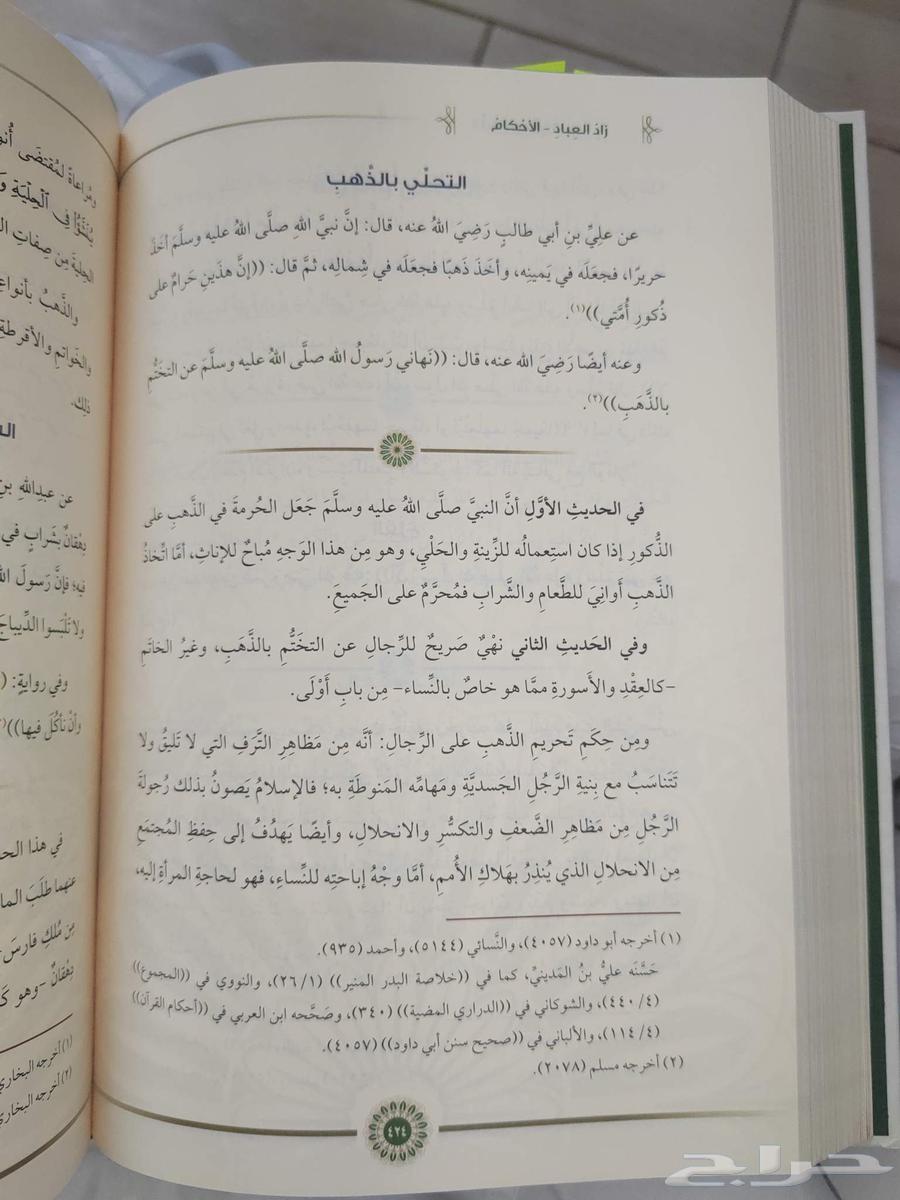 زادُ العِبادِ - الأَحكامُ
التحلِّي بالذَّهبِ
عن علِيِّ بنِ أبي طالبٍ رَضِيَ اللهُ عنه، قال: إنَّ نبيَّ اللهِ صلَّى اللهُ عليه وسلَّمَ أخَذَ
حريرًا، فجعَلَه في يَمينِه، وأخَذَ ذَهبًا فجعَلَه في شِمالِه، ثمَّ قال: ((إنَّ هذَينِ حَرامٌ على
ذُكورِ أُمَّتي))(١).
وعنه أيضًا رَضِيَ الله عنه، قال: ((نَهاني رَسولُ الله صلَّى اللهُ عليه وسلَّمَ عن التختُّمِ
بالذَّهَبِ))(٢).
في الحديثِ الأوَّلِ أنَّ النبيَّ صلَّى اللهُ عليه وسلَّمَ جَعَل الحُرمةَ في الذَّهبِ على
الذُّكورِ إذا كان استِعمالُه للزِّينةِ والحَلْيِ، وهو مِن هذا الوَجهِ مُباحٌ للإناثِ، أمَّا اتِّخاذُ
الذَّهبِ أَوانِيَ للطَّعامِ والشَّرابِ فمُحرَّمٌ على الجَميعِ.
وفي الحَديثِ الثاني نهْيٌ صَريحٌ للرِّجالِ عن التخَتُّمِ بالذَّهَبِ، وغيرُ الخاتَمِ
-كالعِقْدِ والأَسورةِ ممَّا هو خاصٌ بالنِّساء- مِن بابِ أَوْلَى.
ومِن حِكَمِ تَحريمِ الذَّهبِ على الرِّجالِ: أنَّه مِن مَظاهِرِ التَّرَفِ التي لا تَليقُ ولا
تَتَناسَبُ مع بِنيةِ الرَّجُلِ الجَسديَّةِ ومَهامِّه المَنوطَةِ به؛ فالإسلامُ يَصونُ بذلك رُجولةَ
الرَّجُلِ مِن مَظاهِرِ الضَّعفِ والتكسُّرِ والانحلالِ، وأيضًا يَهدُفُ إلى حِفظِ المُجتمَعِ
مِن الانحلالِ الذي يُنذِرُ بهَلاكِ الأُممِ، أمَّا وجْهُ إباحتِه للنِّساءِ، فهو لحاجةِ المرأةِ إليه،
(١) أخرجه أبو داود (٤٠٥٧)، والنَّسائي (٥١٤٤)، وأحمد (٩٣٥).
حَسَّنَه عليُّ بنُ المَدينيِّ، كما في ((خلاصة البدر المنير)) (٢٦/١)، والنووي في ((المجموع))
(٤٤٠/٤)، والشوكاني في ((الدراري المضية)) (٣٤٠)، وصَحَّحه ابن العربي في ((أحكام القرآن))
(١١٤/٤)، والألباني في ((صحيح سنن أبي داود)) (٤٠٥٧).
(٢) أخرجه مسلم (٢٠٧٨).
٤٢٤
ومُراعاةً لمُقتضَى
في الْحِلْيَةِ
الحِليةَ مِن صِفاتِ
والذَّهبُ بأنواعِ
والخَواتمِ والأقرطةِ
ذلك.
عن عبدِاللهِ بنِ
دِهْقانٌ بشَرابٍ في
فيه؛ فإنَّ رَسولَ
ولا تَلْبَسوا الدِّيباجَ
وفي روايةٍ: ((
وأنْ نأكُلَ فيها))
في هذا
عنهما طلَبَ
مِن مُلكِ فارسَ
دِهْقانٌ -وهو
(١) أخرجه البخاري
(٢) أخرجه البخاري
حراج